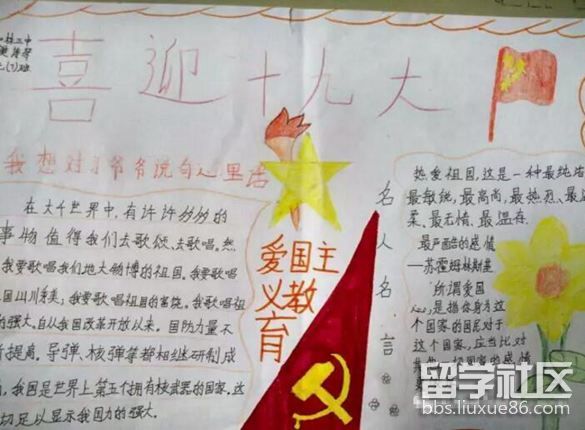 喜迎十九大
我想对习爷爷说句心里话
在大千世界中，有许许多多的
事物值得我们去歌颂、去歌唱。然
我要歌唱我们地大物博的祖国。我要歌唱
国山川秀美，我要歌唱祖国的富饶。我歌唱祖
的强大。自从我国改革开放以来。国防力量不
提高。导弹、核弹等都相继研制成
我国是世界上第五个拥有核武器的国家。这
切足以显示我国力的强大。
爱国主
义教
育
名人名言
热爱祖国，这是一种最纯洁
最敏锐，最高尚，最热烈、最温
柔、最无情、最温存、
最严酷的感情
——苏霍姆林斯基
所谓爱国
心，是指你身为这
个国家的国民对于
这个国家，应当比对
国家的感情
留学社区
bbs.liuxue86.com